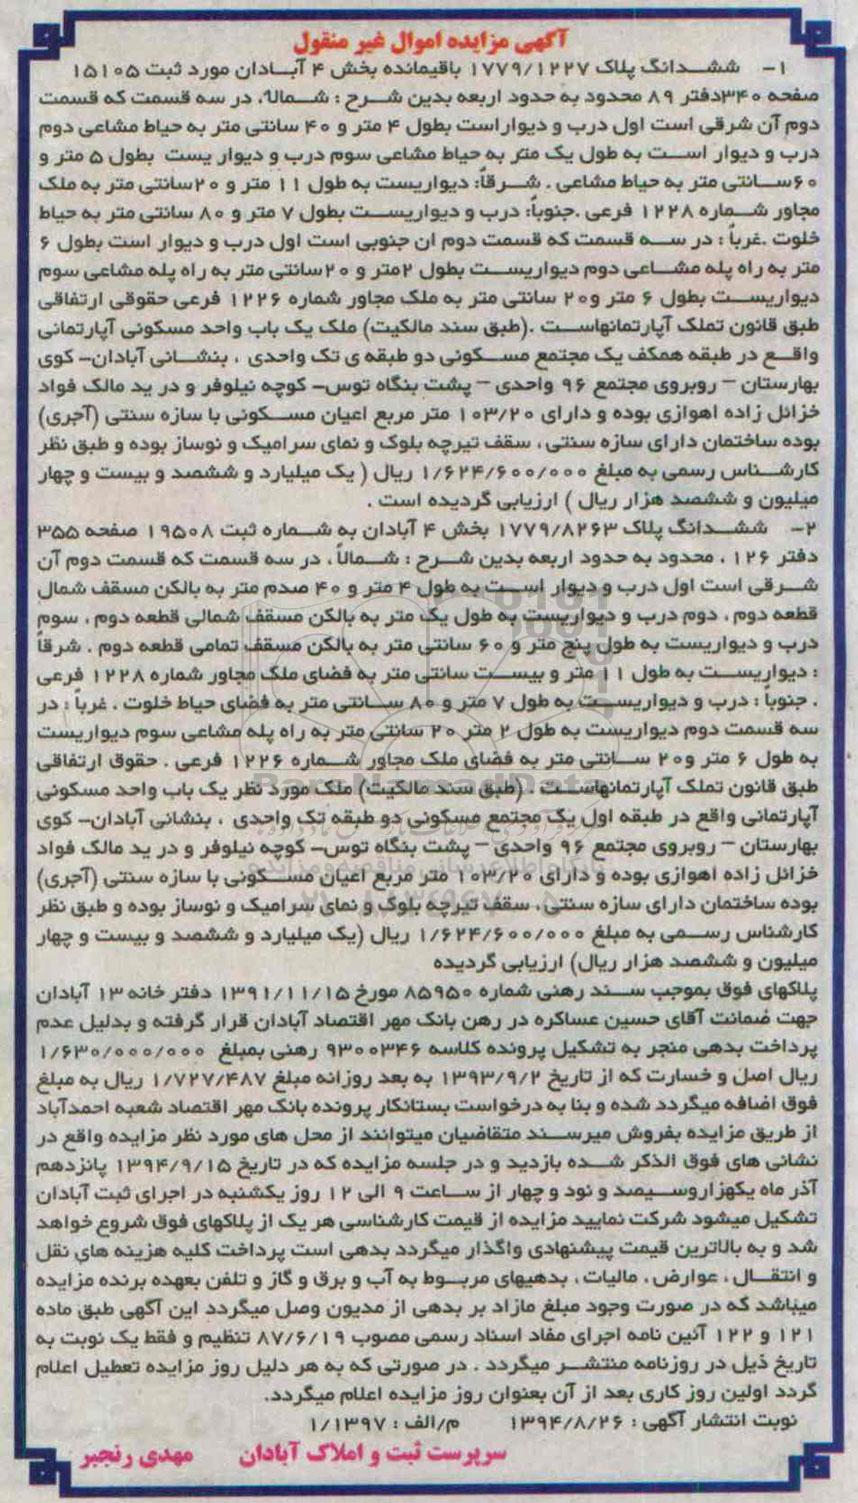 آگهی مزایده اموال غیر منقول
۱- ششدانگ پلاک ۱۷۷۹/۱۲۲۷ باقیمانده بخش ۴ آبادان مورد ثبت ۱۵۱۰۵
صفحه ۳۴۰دفتر ۸۹ محدود به حدود اربعه بدین شرح : شمالا، در سه قسمت که قسمت
دوم آن شرقی است اول درب و دیواراست بطول ۴ متر و ۴۰ سانتی متر به حیاط مشاعی دوم
درب و دیوار است به طول یک متر به حیاط مشاعی سوم درب و دیوار یست بطول ۵ متر و
۶۰سانتی متر به حیاط مشاعی . شرقاً: دیواریست به طول ۱۱ متر و ۲۰سانتی متر به ملک
مجاور شماره ۱۲۲۸ فرعی .جنوباً: درب و دیواریست بطول ۷ متر و ۸۰ سانتی متر به حیاط
خلوت .غرباً : در سه قسمت که قسمت دوم ان جنوبی است اول درب و دیوار است بطول ۶
متر به راه پله مشاعی دوم دیواریست بطول ۲متر و ۲۰سانتی متر به راه پله مشاعی سوم
دیواریست بطول ۶ متر و۲۰ سانتی متر به ملک مجاور شماره ۱۲۲۶ فرعی حقوقی ارتفاقی
طبق قانون تملک آپارتمانهاست .(طبق سند مالکیت) ملک یک باب واحد مسکونی آپارتمانی
واقع در طبقه همکف یک مجتمع مسکونی دو طبقه ی تک واحدی ، بنشانی آبادان- کوی
بهارستان - روبروی مجتمع ۹۶ واحدی - پشت بنگاه توس- کوچه نیلوفر و در ید مالک فواد
خزائل زاده اهوازی بوده و دارای ۱۰۳/۲۰ متر مربع اعیان مسکونی با سازه سنتی (آجری)
بوده ساختمان دارای سازه سنتی ، سقف تیرچه بلوک و نمای سرامیک و نوساز بوده و طبق نظر
کارشناس رسمی به مبلغ ۱/۶۲۴/۶۰۰/۰۰۰ ریال ( یک میلیارد و ششصد و بیست و چهار
میلیون و ششصد هزار ریال ) ارزیابی گردیده است .
۲- ششدانگ پلاک ۱۷۷۹/۸۲۶۳ بخش ۴ آبادان به شماره ثبت ۱۹۵۰۸ صفحه ۳۵۵
دفتر ۱۲۶ ، محدود به حدود اربعه بدین شرح : شمالاً ، در سه قسمت که قسمت دوم آن
شرقی است اول درب و دیوار است به طول ۴ متر و ۴۰ صدم متر به بالکن مسقف شمال
قطعه دوم ، دوم درب و دیواریست به طول یک متر به بالکن مسقف شمالی قطعه دوم ، سوم
درب و دیواریست به طول پنج متر و ۶۰ سانتی متر به بالکن مسقف تمامی قطعه دوم . شرقاً
: دیواریست به طول ۱۱ متر و بیست سانتی متر به فضای ملک مجاور شماره ۱۲۲۸ فرعی
. جنوباً : درب و دیواریست به طول ۷ متر و ۸۰ سانتی متر به فضای حیاط خلوت . غرباً : در
سه قسمت دوم دیواریست به طول ۲ متر ۲۰ سانتی متر به راه پله مشاعی سوم دیواریست
به طول ۶ متر و۲۰ سانتی متر به فضای ملک مجاور شماره ۱۲۲۶ فرعی . حقوق ارتفاقی
طبق قانون تملک آپارتمانهاست . (طبق سند مالکیت) ملک مورد نظر یک باب واحد مسکونی
آپارتمانی واقع در طبقه اول یک مجتمع مسکونی دو طبقه تک واحدی ، بنشانی آبادان- کوی
بهارستان - روبروی مجتمع ۹۶ واحدی - پشت بنگاه توس- کوچه نیلوفر و در ید مالک فواد
خزائل زاده اهوازی بوده و دارای ۱۰۳/۲۰ متر مربع اعیان مسکونی با سازه سنتی (آجری)
بوده ساختمان دارای سازه سنتی ، سقف تیرچه بلوک و نمای سرامیک و نوساز بوده و طبق نظر
کارشناس رسمی به مبلغ ۱/۶۲۴/۶۰۰/۰۰۰ ریال (یک میلیارد و ششصد و بیست و چهار
میلیون و ششصد هزار ریال) ارزیابی گردیده
پلاکهای فوق بموجب سند رهنی شماره ۸۵۹۵۰ مورخ ۱۳۹۱/۱۱/۱۵ دفتر خانه ۱۳ آبادان
جهت ضمانت آقای حسین عساکره در رهن بانک مهر اقتصاد آبادان قرار گرفته و بدلیل عدم
پرداخت بدهی منجر به تشکیل پرونده کلاسه ۹۳۰۰۳۴۶ رهنی بمبلغ ۱/۶۳۰/۰۰۰/۰۰۰
ریال اصل و خسارت که از تاریخ ۱۳۹۳/۹/۲ به بعد روزانه مبلغ ۱/۷۲۷/۴۸۷ ریال به مبلغ
فوق اضافه میگردد شده و بنا به درخواست بستانکار پرونده بانک مهر اقتصاد شعبه احمدآباد
از طریق مزایده بفروش میرسند متقاضیان میتوانند از محل های مورد نظر مزایده واقع در
نشانی های فوق الذکر شده بازدید و در جلسه مزایده که در تاریخ ۱۳۹۴/۹/۱۵ پانزدهم
آذر ماه یکهزاروسیصد و نود و چهار از ساعت ۹ الی ۱۲ روز یکشنبه در اجرای ثبت آبادان
تشکیل میشود شرکت نمایید مزایده از قیمت کارشناسی هر یک از پلاکهای فوق شروع خواهد
شد و به بالاترین قیمت پیشنهادی واگذار میگردد بدهی است پرداخت کلیه هزینه های نقل
و انتقال ، عوارض ، مالیات ، بدهیهای مربوط به آب و برق و گاز و تلفن بعهده برنده مزایده
میباشد که در صورت وجود مبلغ مازاد بر بدهی از مدیون وصل میگردد این آگهی طبق ماده
۱۲۱ و ۱۲۲ آئین نامه اجرای مفاد اسناد رسمی مصوب ۸۷/۶/۱۹ تنظیم و فقط یک نوبت به
تاریخ ذیل در روزنامه منتشر میگردد . در صورتی که به هر دلیل روز مزایده تعطیل اعلام
گردد اولین روز کاری بعد از آن بعنوان روز مزایده اعلام میگردد.
نوبت انتشار آگهی : ۱۳۹۴/۸/۲۶ م/الف : ۱/۱۳۹۷
سرپرست ثبت و املاک آبادان مهدی رنجبر